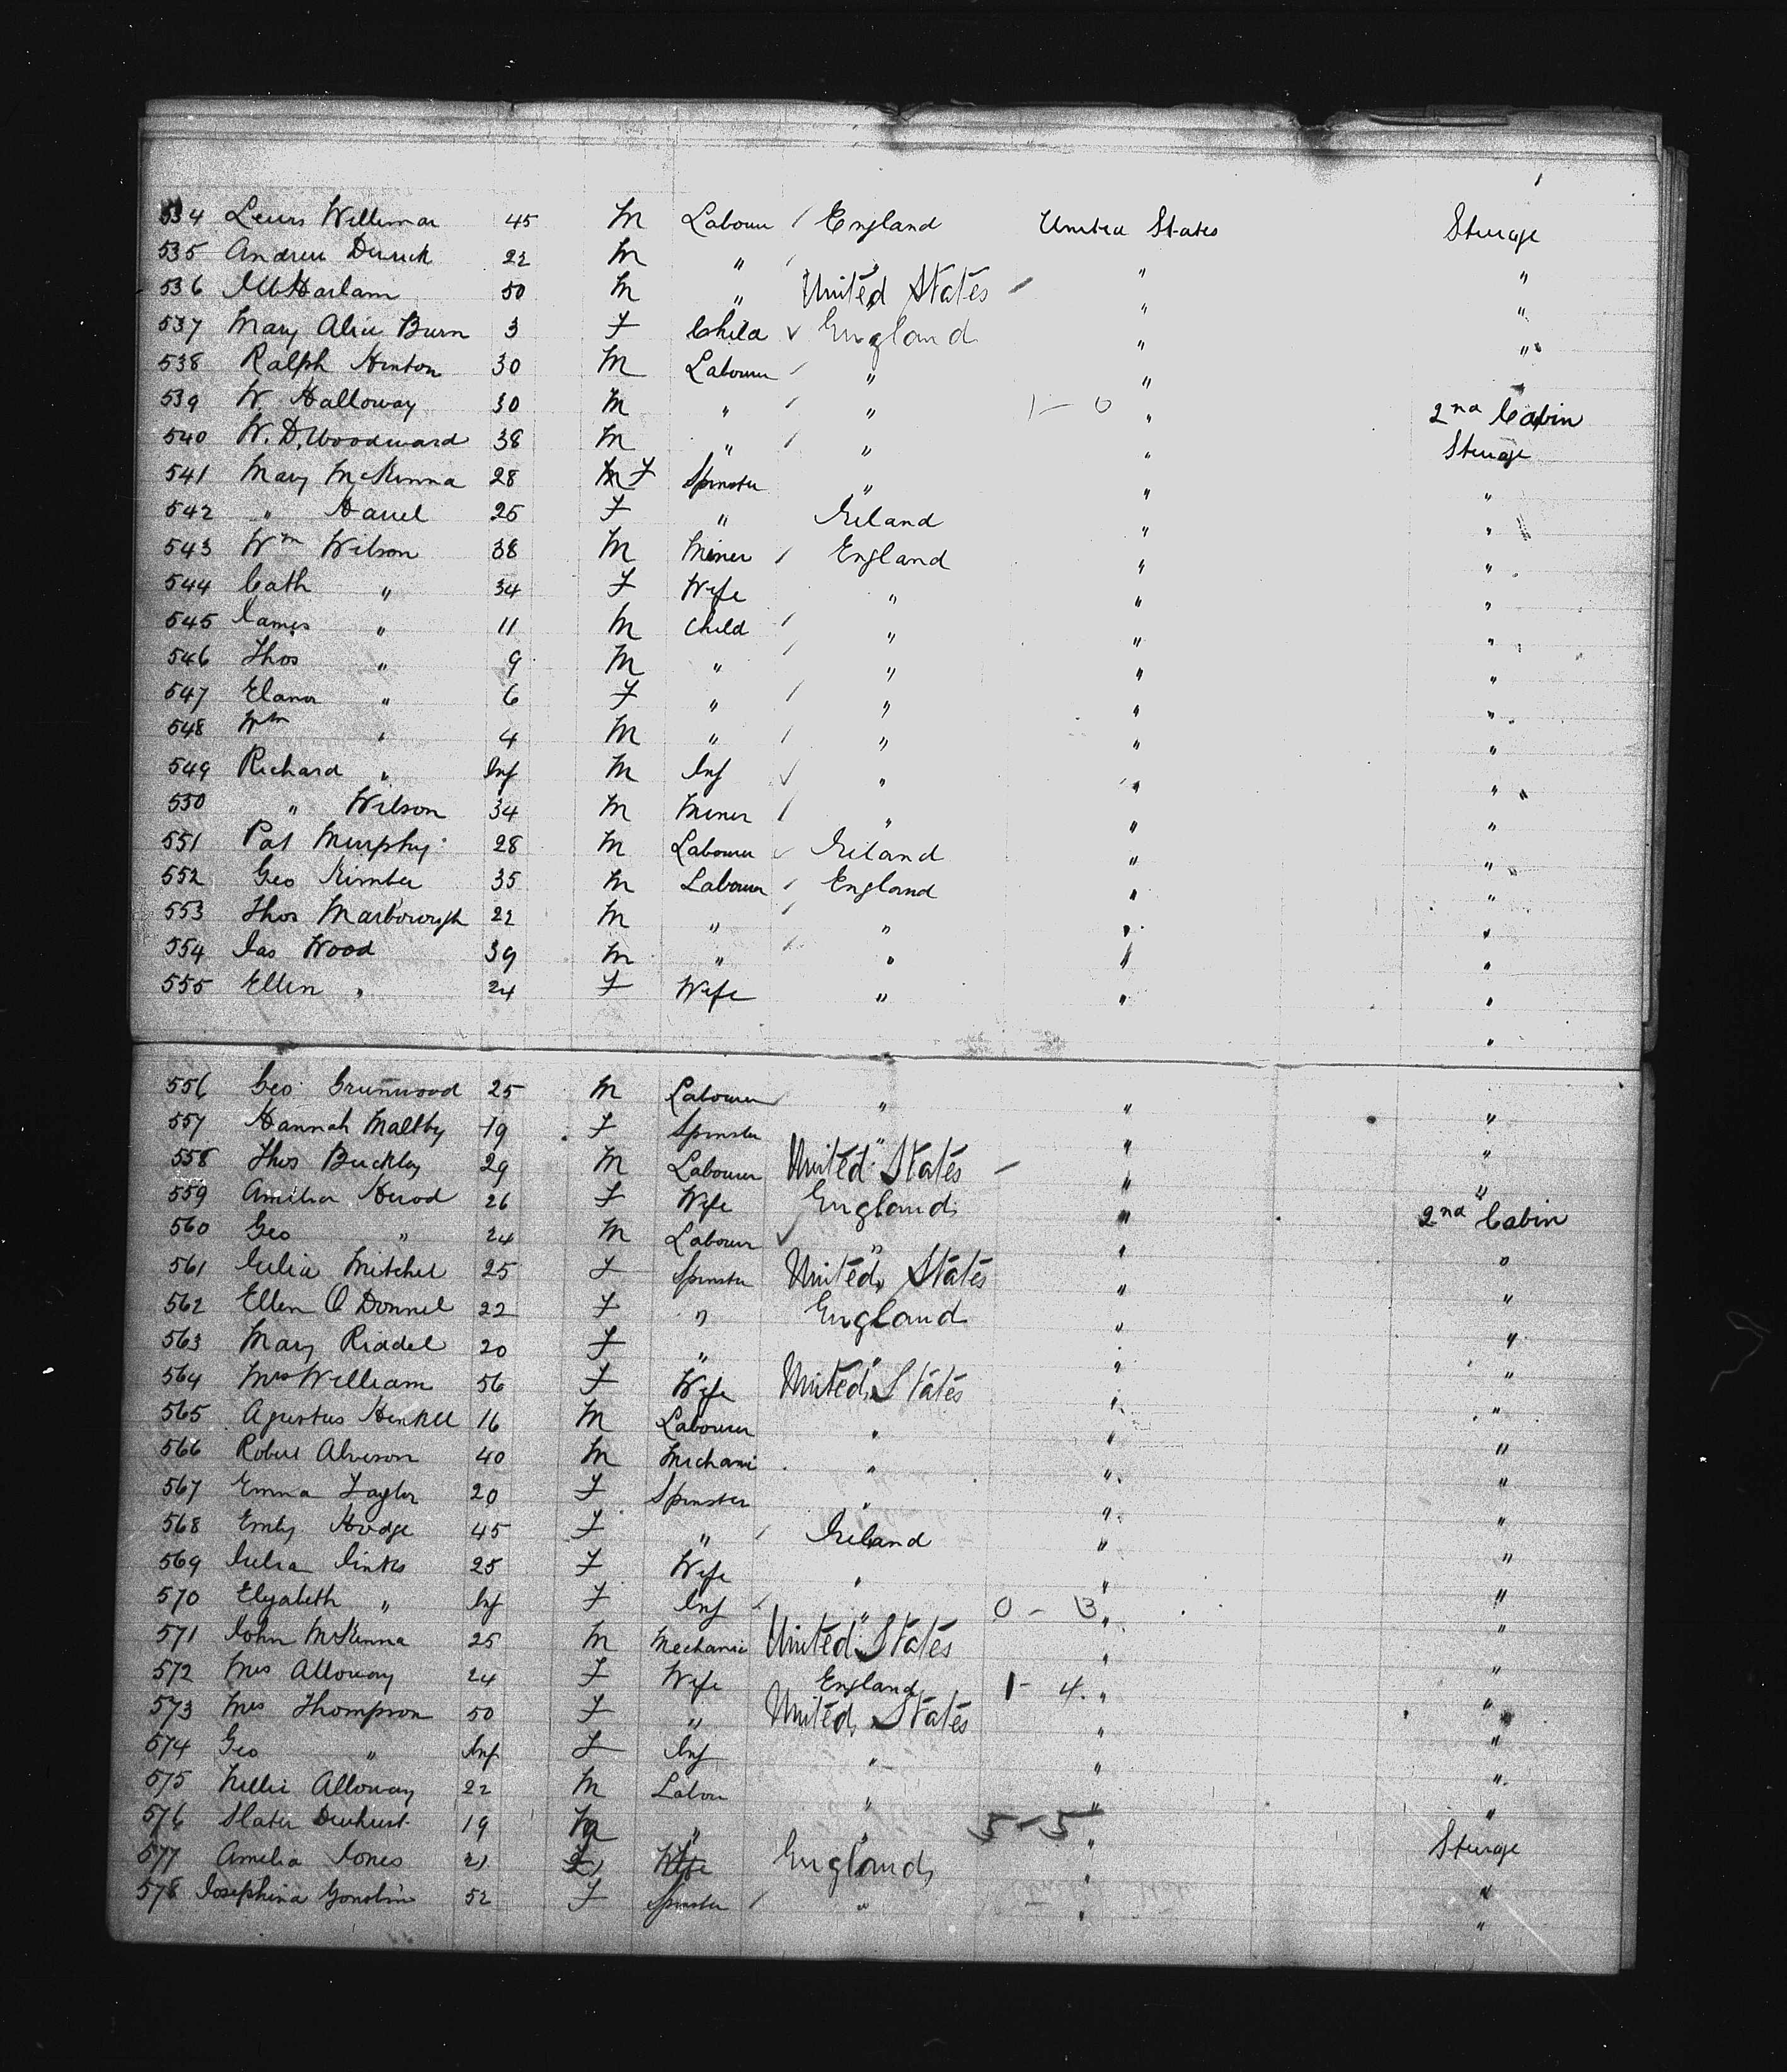 534 Lewis Willimar 45 M Labour / England United States Sterage
535 Andrew Derrick 22 M " / " " "
536 50 M " United States / " "
537 Mary Alice Burn 3 F Child ✓ England " "
538 Ralph Hinton 30 M Labourer / " " "
539 W Halloway 30 M " / " 1 - 0 " 2nd Cabin
540 W. D. Woodward 38 M " / " " Sterage
541 Mary McKinna 28 M F Spinster " " "
542 " Harrel 25 F " Ireland " "
543 Wm Wilson 38 M Miner / England " "
544 Cath " 34 F Wife " " "
545 James " 11 M Child / " " "
546 Thos " 9 M " / " " "
547 Elanor " 6 F " / " " "
548 Wm " 4 M " / " " "
549 Richard " Inf M Inf ✓ " " "
550 " Wilson 34 M Miner / " " "
551 Pat Murphy 28 M Labourer ✓ Ireland " "
552 Geo Kimber 35 M Labour / England " "
553 Thos Marborough 22 M " / " " "
554 Jas Wood 39 M " / " " "
555 Ellen " 24 F Wife " " "
"
556 Geo Grunwood 25 M Labourer " " "
557 Hannah Maltby 19 F Spinster " " "
558 Thos Buckley 29 M Labourer United States / " "
559 Amelia Herod 26 F Wife England " 2nd Cabin
560 Geo " 24 M Labour ✓ " " "
561 Julia Mitchel 25 F Spinster United States " "
562 Ellen O Donnel 22 F " England " "
563 Mary Riddel 20 F " " " "
564 Mrs William 56 F Wife United States " "
565 Agustus Henkel 16 M Labourer " " "
566 Robert Alverson 40 M Mechani " " "
567 Emma Taylor 20 F Spinster " " "
568 Emly Hodge 45 F " / Ireland " "
569 Julia Jinks 25 F Wife " " "
570 Elyabeth " Inf F Inf / " 0 - 3 " "
571 John McKenna 25 M Mechanic United States " "
572 Mrs Alloway 24 F Wife England 1 - 4 " "
573 Mrs Thompson 50 F " United States " "
574 Geo " Inf F Inf " " "
575 Nellie Alloway 22 M Labou " " "
576 Slater Dewhurst 19 M " " 5 - 5 " Sterage
577 Amelia Jones 21 F Wife England " "
578 Josephina 52 F Spinster / " " "